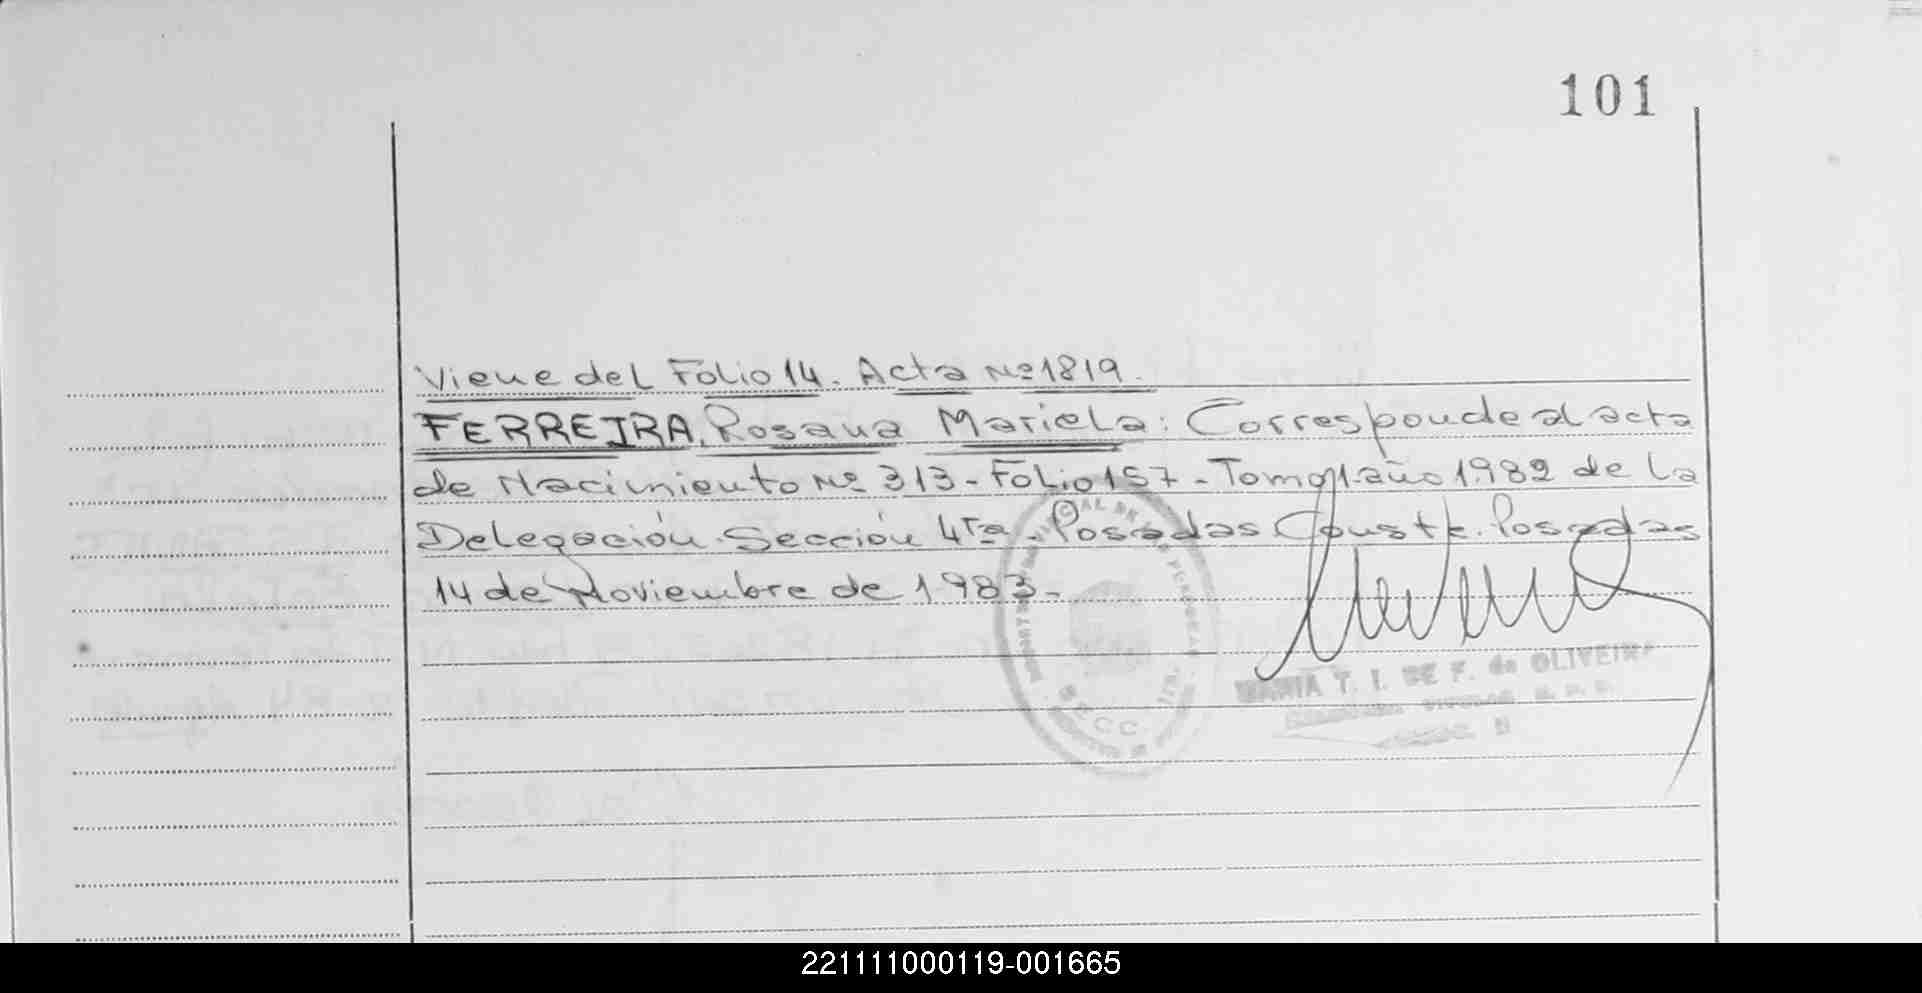 101
Viene del Folio 14. Acta Nº 1819.
FERREIRA, Rosana Mariela: Corresponde al acta
de Nacimiento Nº 313 - Folio 157 - Tomo 1 año 1.982 de la
Delegación Sección 4ta. Posadas Conste. Posadas
14 de Noviembre de 1983.-
SECC. 1ra.
MARIA T. I. DE F. de OLIVEIRA
221111000119-001665